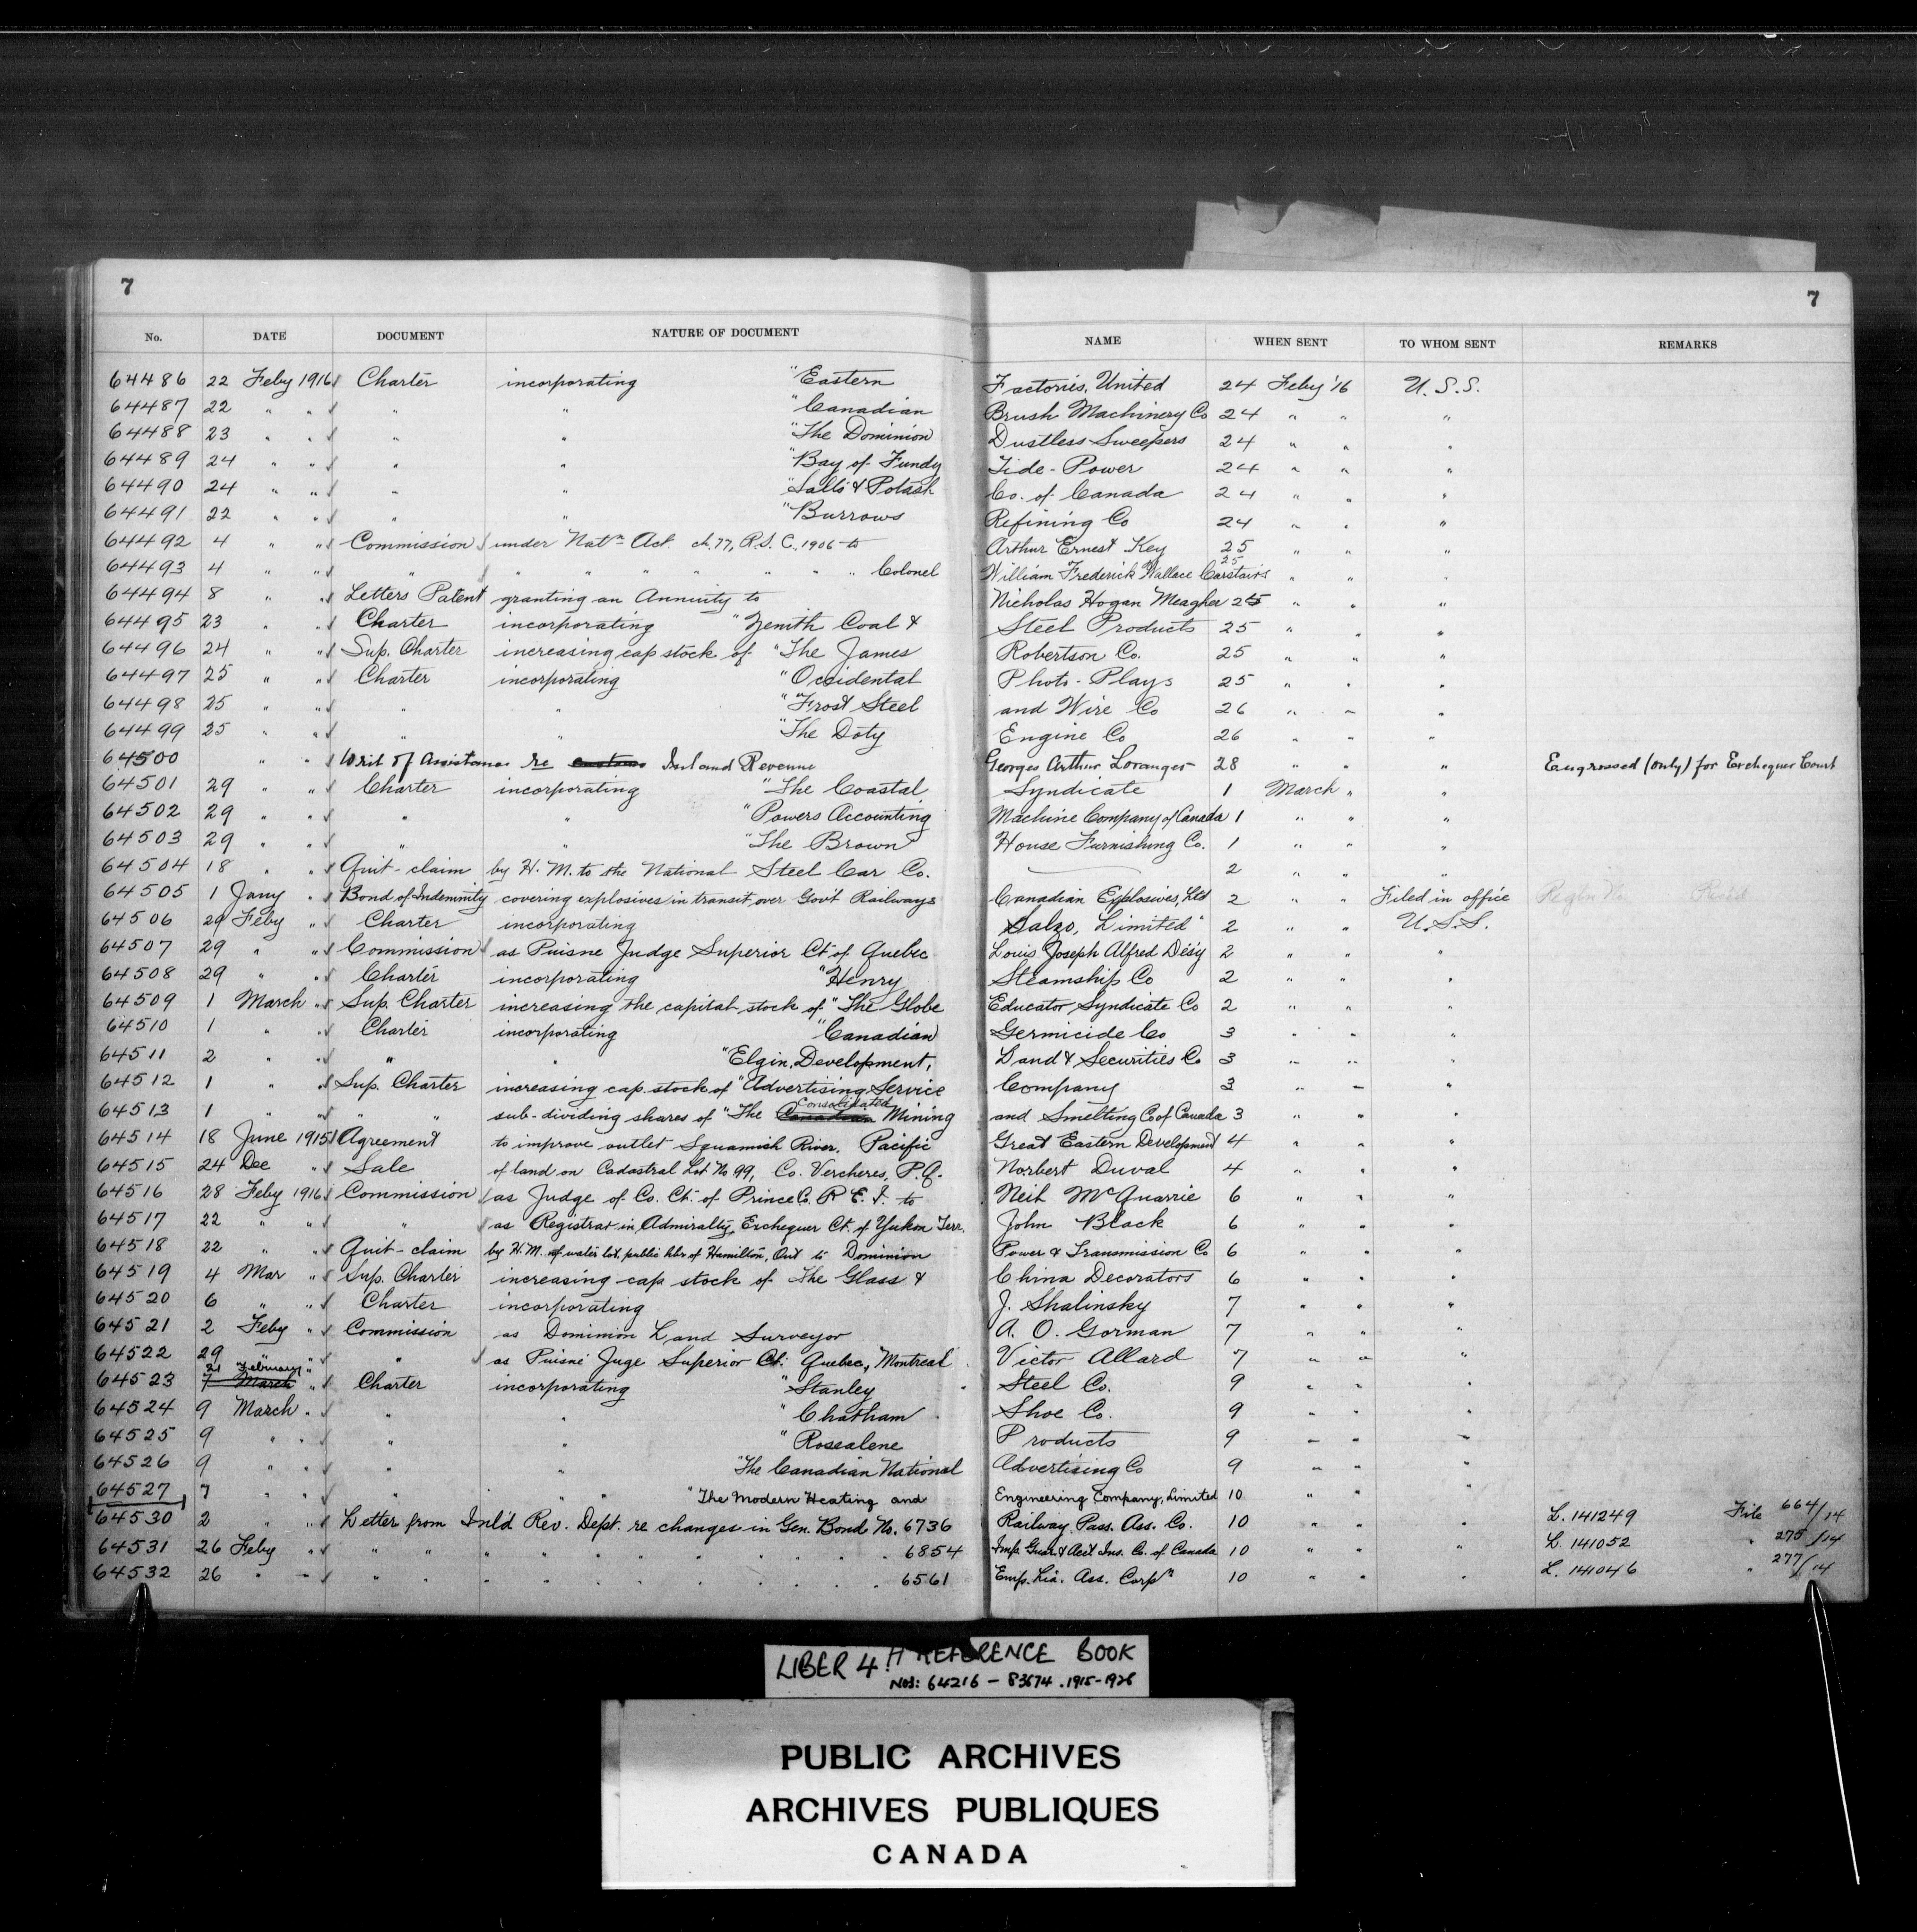 7
7
No. DATE DOCUMENT NATURE OF DOCUMENT NAME WHEN SENT TO WHOM SENT REMARKS
64486 22 Feby 1916 Charter incorporating "Eastern Factories, United 24 Feby '16 U.S.S.
64487 22 " " " " "Canadian Brush Machinery Co 24 " " "
64488 23 " " " " "The Dominion Dustless Sweepers 24 " " "
64489 24 " " " " "Bay of Fundy Tide-Power 24 " " "
64490 24 " " " " "Salts & Potash Co. of Canada 24 " " "
64491 22 " " " " "Burrows Refining Co 24 " " "
64492 4 " " Commission under Natn Act. ch. 77, R.S.C., 1906 to Arthur Ernest Key 25 " " "
64493 4 " " " " " " " " " " Colonel William Frederick Wallace Carstairs 25 " " "
64494 8 " " Letters Patent granting an Annuity to Nicholas Hogan Meagher 25 " " "
64495 23 " " Charter incorporating "Zenith Coal & Steel Products 25 " " "
64496 24 " " Sup. Charter increasing cap stock of "The James Robertson Co. 25 " " "
64497 25 " " Charter incorporating "Occidental Photo-Plays 25 " " "
64498 25 " " " " "Frost Steel and Wire Co 26 " " "
64499 25 " " " " "The Doty Engine Co 26 " " "
64500 " " Writ of Assistance re customs Inland Revenue Georges Arthur Loranger 28 " " " Engrossed (only) for Exchequer Court
64501 29 " " Charter incorporating "The Coastal Syndicate 1 March " "
64502 29 " " " " "Powers Accounting Machine Company of Canada 1 " " "
64503 29 " " " " "The Brown House Furnishing Co. 1 " " "
64504 18 " " Quit-claim by H.M. to the National Steel Car Co. 2 " " "
64505 1 Jany " Bond of Indemnity covering explosives in transit over Gov't Railways Canadian Explosives, Ltd 2 " " Filed in office Regln No
64506 29 Feby " Charter incorporating Salzo, Limited" 2 " " U.S.S.
64507 29 " " Commission as Puisne Judge Superior Ct of Quebec Louis Joseph Alfred Désy 2 " " "
64508 29 " " Charter incorporating "Henry Steamship Co 2 " " "
64509 1 March " Sup. Charter increasing the capital stock of "The Globe Educator Syndicate Co 2 " " "
64510 1 " " Charter incorporating "Canadian Germicide Co 3 " " "
64511 2 " " " " "Elgin Development, Land & Securities Co 3 " " "
64512 1 " " Sup. Charter increasing cap. stock of "Advertising Service Company 3 " " "
64513 1 " " " " sub-dividing shares of "The Canadian Consolidated Mining and Smelting Co of Canada 3 " " "
64514 18 June 1915 Agreement to improve outlet Squamish River. Pacific Great Eastern Development 4 " " "
64515 24 Dec " Sale of land on Cadastral Lot No 99, Co. Vercheres, P.Q. Norbert Duval 4 " " "
64516 28 Feby 1916 Commission as Judge of Co. Ct. of Prince Co. P.E.I. to Neil McQuarrie 6 " " "
64517 22 " " " as Registrar in Admiralty, Exchequer Ct. of Yukon Terr. John Black 6 " " "
64518 22 " " Quit-claim by H.M. of water lot, public hbr of Hamilton, Ont to Dominion Power & Transmission Co 6 " " "
64519 4 Mar " Sup. Charter increasing cap stock of The Glass & China Decorators 6 " " "
64520 6 " " Charter incorporating J. Shalinsky 7 " " "
64521 2 Feby " Commission as Dominion Land Surveyor A. O. Gorman 7 " " "
64522 29 " " " as Puisné Juge Superior Ct. Quebec, Montreal Victor Allard 7 " " "
64523 7 March 21 February " Charter incorporating "Stanley Steel Co. 9 " " "
64524 9 March " " " "Chatham Shoe Co. 9 " " "
64525 9 " " " " "Rosealene Products 9 " " "
64526 9 " " " " "The Canadian National Advertising Co 9 " " "
64527 7 " " " " " "The Modern Heating and Engineering Company, Limited 10 " " "
64530 2 " " Letter from Inl'd Rev. Dept. re changes in Gen. Bond No. 6736 Railway Pass. Ass. Co. 10 " " " L. 141249 File 664/14
64531 26 Feby " " " " " " " " " " 6854 Imp. Guar. & Acc't Ins. Co. of Canada 10 " " " L. 141052 " 275/14
64532 26 " " " " " " " " " " " 6561 Emp. Lia. Ass. Corpn 10 " " " L. 141046 " 277/14
LIBER 4 H REFERENCE BOOK
NOS: 64216 - 83674 . 1915-1928
PUBLIC ARCHIVES
ARCHIVES PUBLIQUES
CANADA